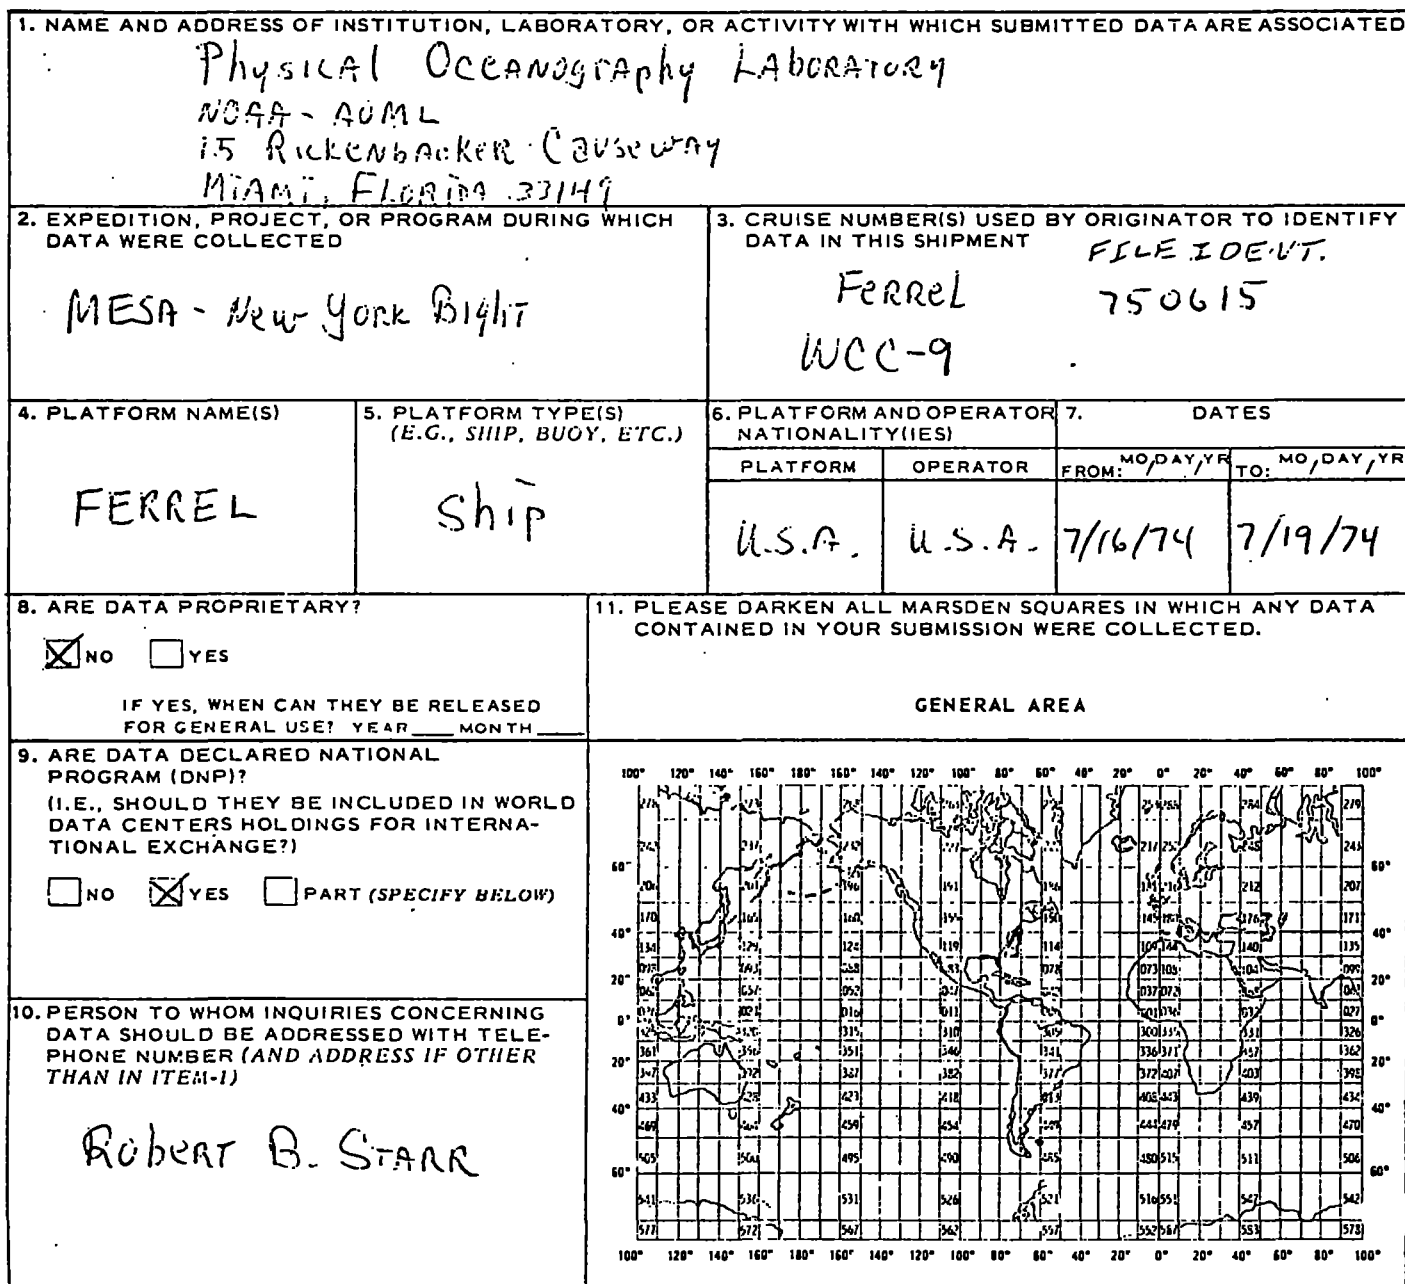 1. NAME AND ADDRESS OF INSTITUTION, LABORATORY, OR ACTIVITY WITH WHICH SUBMITTED DATA ARE ASSOCIATED
Physical Oceanography Laboratory
NOAA - AOML
15 Rickenbacker Causeway
Miami, Florida 33149
2. EXPEDITION, PROJECT, OR PROGRAM DURING WHICH
DATA WERE COLLECTED
MESA - New York Bight
3. CRUISE NUMBER(S) USED BY ORIGINATOR TO IDENTIFY
DATA IN THIS SHIPMENT
FILE IDENT.
Ferrel 750615
WCC-9
4. PLATFORM NAME(S)
FERREL
5. PLATFORM TYPE(S)
(E.G., SHIP, BUOY, ETC.)
Ship
6. PLATFORM AND OPERATOR
NATIONALITY(IES)
PLATFORM OPERATOR
U.S.A. U.S.A.
7. DATES
FROM: MO/DAY/YR TO: MO/DAY/YR
7/16/74 7/19/74
8. ARE DATA PROPRIETARY?
NO YES
IF YES, WHEN CAN THEY BE RELEASED
FOR GENERAL USE? YEAR____ MONTH____
9. ARE DATA DECLARED NATIONAL
PROGRAM (DNP)?
(I.E., SHOULD THEY BE INCLUDED IN WORLD
DATA CENTERS HOLDINGS FOR INTERNA-
TIONAL EXCHANGE?)
NO YES PART (SPECIFY BELOW)
10. PERSON TO WHOM INQUIRIES CONCERNING
DATA SHOULD BE ADDRESSED WITH TELE-
PHONE NUMBER (AND ADDRESS IF OTHER
THAN IN ITEM-1)
Robert B. Starr
11. PLEASE DARKEN ALL MARSDEN SQUARES IN WHICH ANY DATA
CONTAINED IN YOUR SUBMISSION WERE COLLECTED.
GENERAL AREA
100° 120° 140° 160° 180° 160° 140° 120° 100° 80° 60° 40° 20° 0° 20° 40° 60° 80° 100°
60° 212 207 60°
170 171
40° 134 119 114 140 135 40°
20° 20°
0° 315 310 326 0°
20° 361 351 341 362 20°
423 418 439 434
40° 459 454 457 470 40°
60° 495 490 511 506 60°
531 526 542
100° 120° 140° 160° 180° 160° 140° 120° 100° 80° 60° 40° 20° 0° 20° 40° 60° 80° 100°